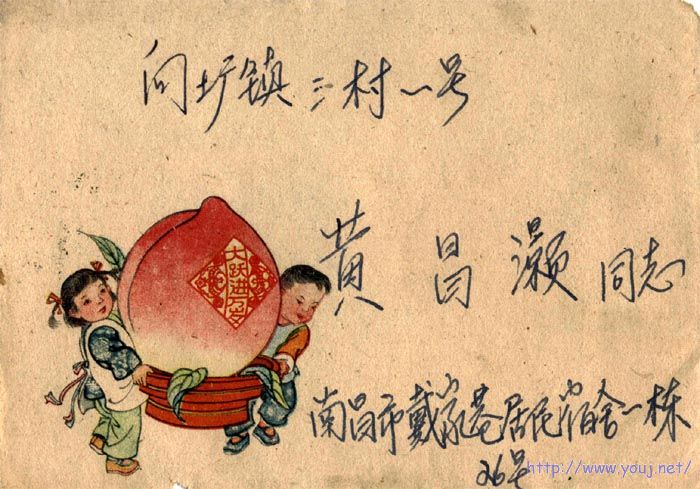 向圩镇三村一号
黄昌灏同志
大跃进万岁
南昌市戴家巷居民宿舍一栋
26号
http://www.youj.net/